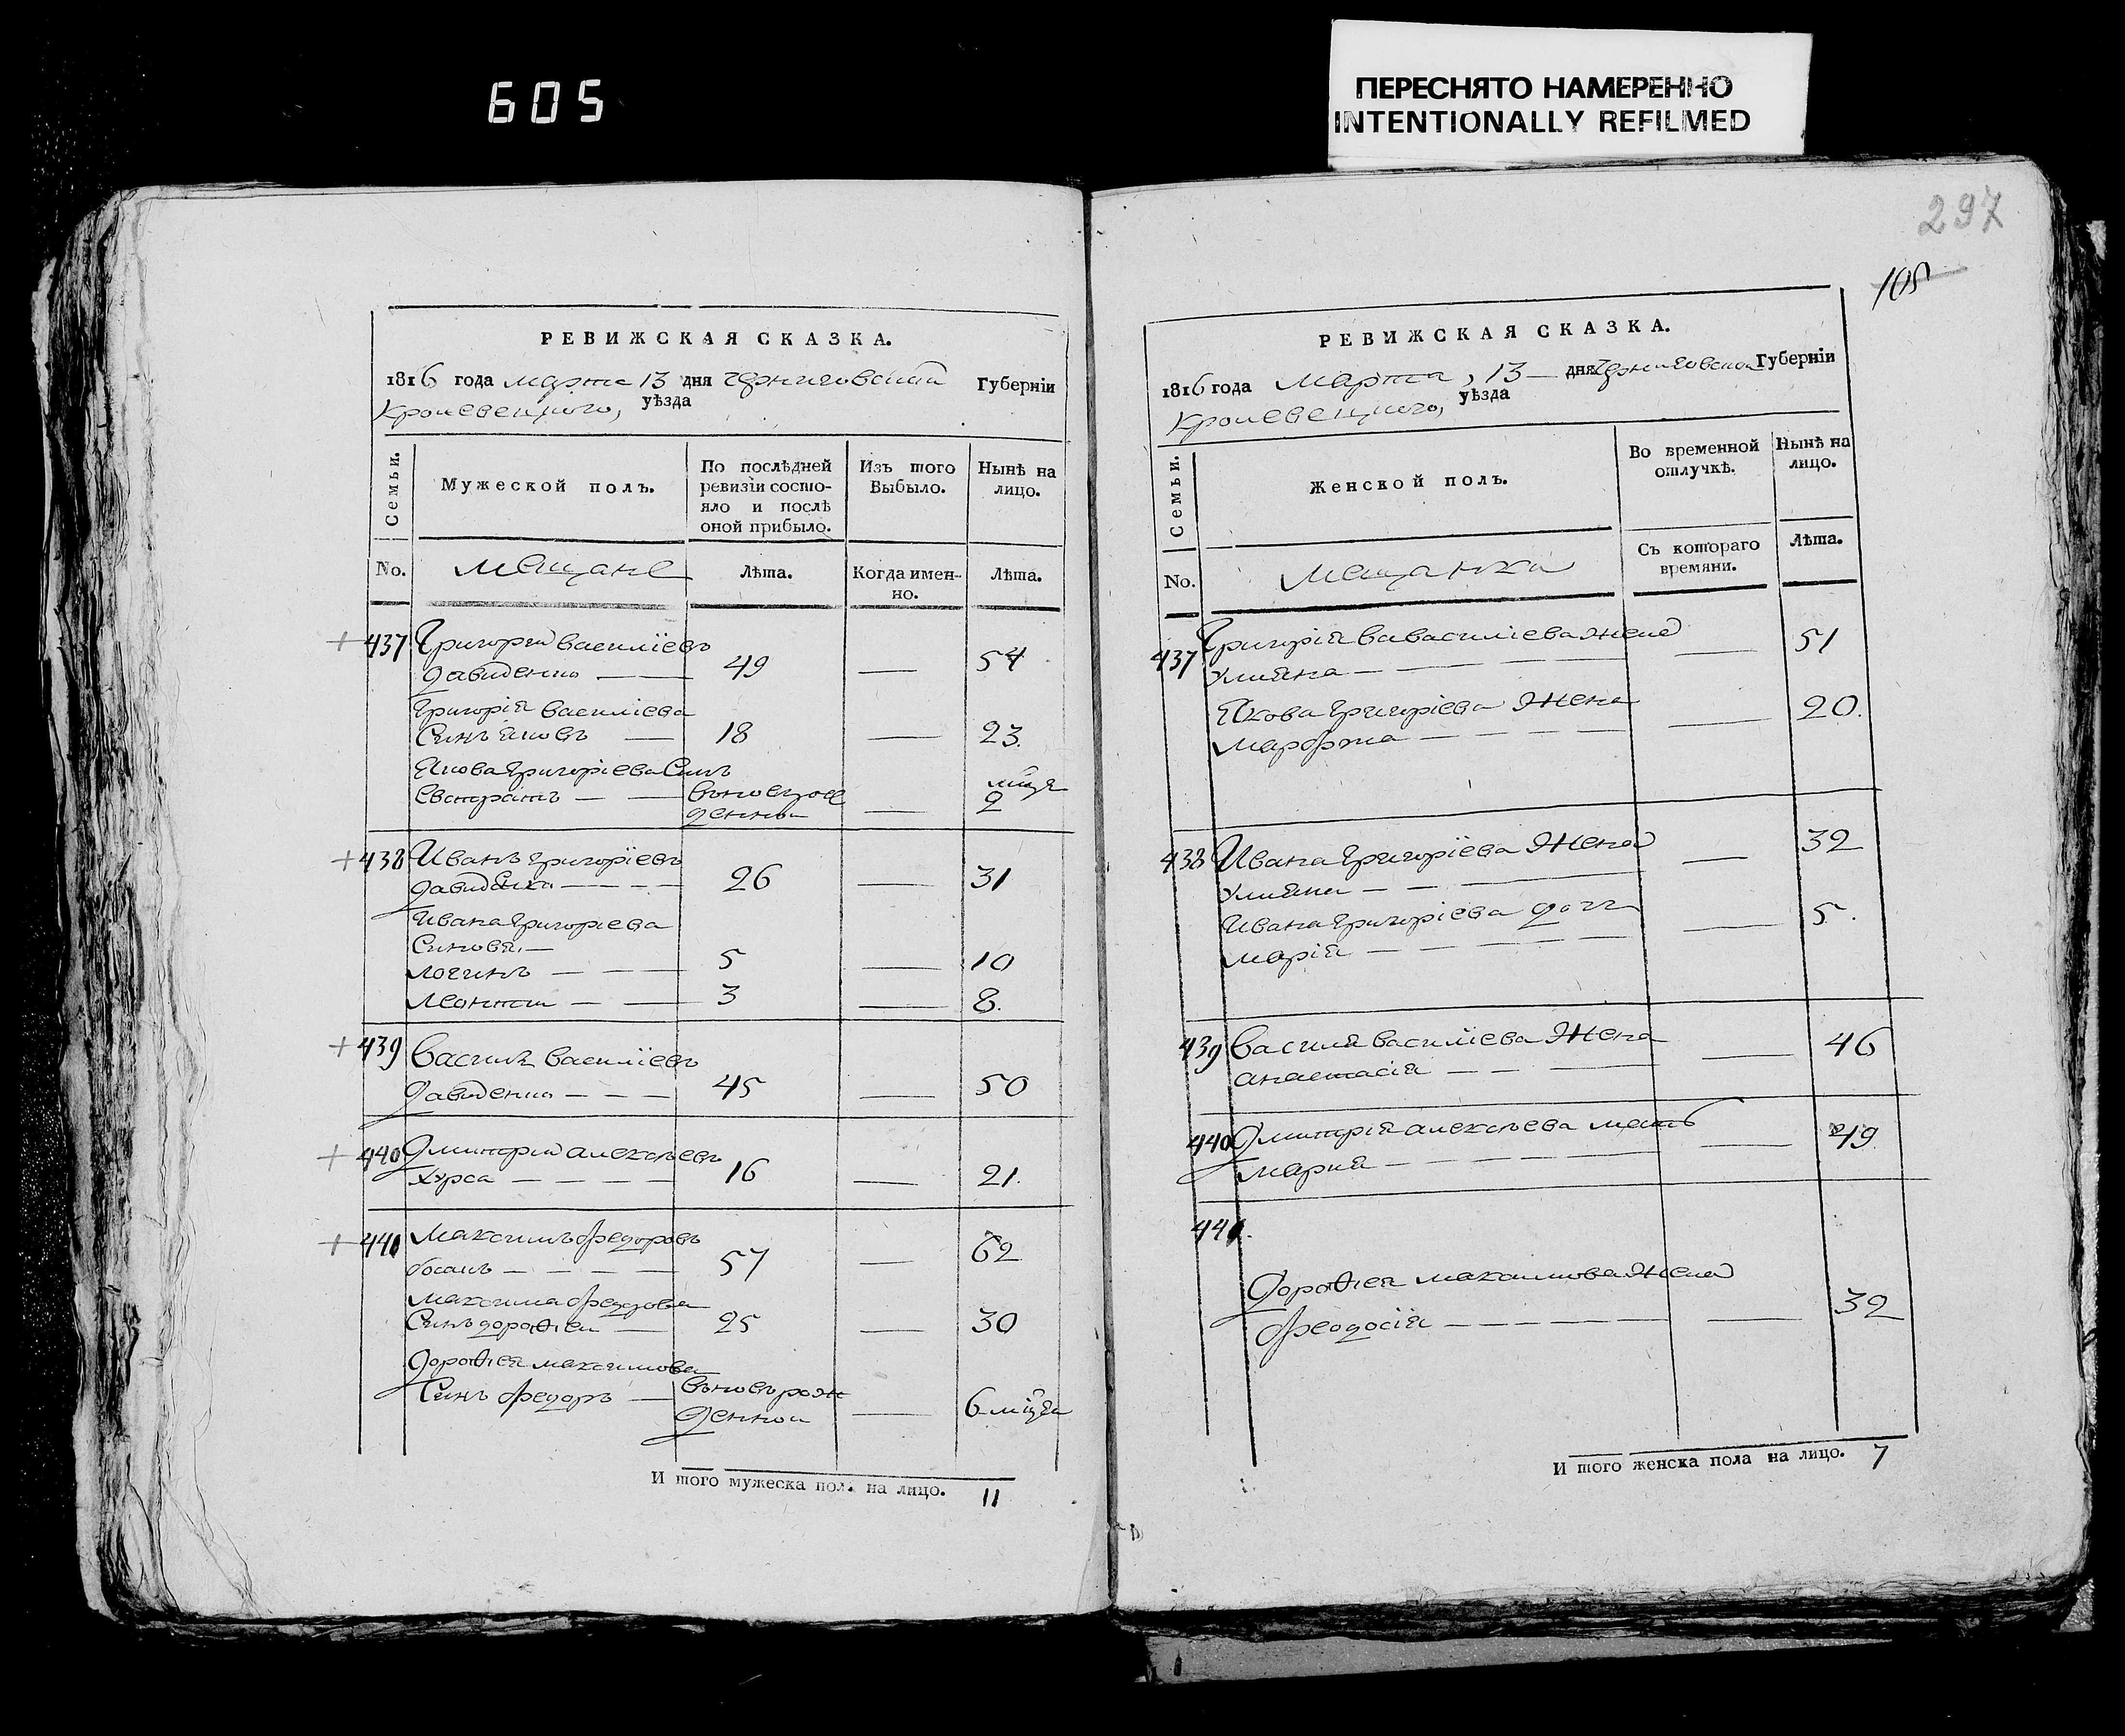 605
ПЕРЕСНЯТО НАМЕРЕННО
INTENTIONALLY REFILMED
297
105
РЕВИЖСКАЯ СКАЗКА.
1816 года марта 13 дня Черниговской Губернїи
Кролевецкого, уѣзда
Семьи.
Мужеской полъ.
По послѣдней
ревизїи состо-
яло и послѣ
оной прибыло.
Изъ того
Выбыло.
Нынѣ на
лицо.
No.
мещане
Лѣта.
Когда имен-
но.
Лѣта.
437 Григорий Василїевъ
Давиденко — 49 — 54
Григорїя Василїева
Синъ Яковъ — 18 — 23.
Якова Григорїева Синъ
Евстратъ — — вновь рож
денны — мця 2
438 Иванъ Григорїевъ
Давиденко — — — 26 — 31
Ивана Григорїева
Синовя —
логинъ — — 5 — 10
леонтий — — 3 — 8.
439 Василь Василїевъ
Давиденко — — — 45 — 50
440 Дмитрий алексѣевъ
Хурса — — — — 16 — 21.
441 Максимъ Федоровъ
— — — — 57 — 62
максима Федорова
Синъ дорофей — 25 — 30
Дорофея максимова
Синъ Федоръ — вновь рож
денной — 6 мця
И того мужеска пол. на лицо. 11
РЕВИЖСКАЯ СКАЗКА.
1816 года марта, 13 — дня Черниговской Губернїи
Кролевецкого, уѣзда
Семьи.
Женской полъ.
Во временной
отлучкѣ.
Нынѣ на
лицо.
No.
мещанки
Съ котораго
времяни.
Лѣта.
437 Григорїя Василїева жена
Улияна — — — — — 51
Якова Григорїева Жена
марфа — — — — — 20.
438 Ивана Григорїева Жена
Улияна — — — — 32
Ивана Григорїева дочь
марїя — — — — — 5.
439 Василя Василїева Жена
анастасїя — — — — 46
440 Дмитрїя алексѣева мать
мария — — — — — 49
441.
Дорофея максимова Жена
Феодосїя — — — — — — 32
И того женска пола на лицо. 7